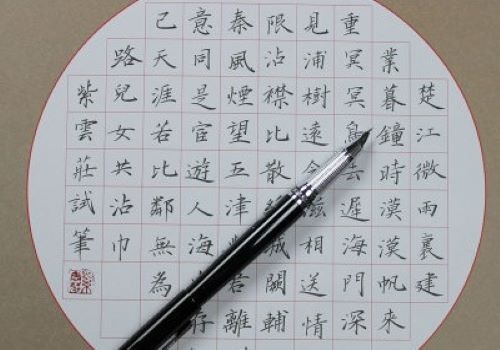 楚江微雨裏建
業暮鐘時漠漠帆來
重冥冥鳥去遲海門深
見浦樹遠含滋相送情
限沾襟比散城闕輔
秦風煙望五津君離
意同是宦遊人海存
己天涯若比鄰無為
路兒女共沾巾
紫雲莊試筆